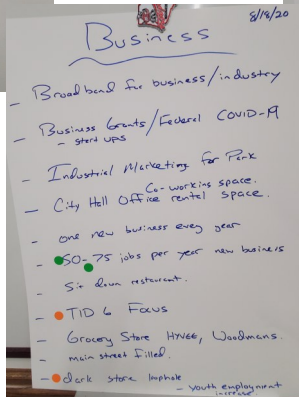 8/18/20
Business
- Broadband for business/industry
- Business Grants/Federal COVID-19
- start ups
- Industrial Marketing for Park
Co-working space.
- City Hall Office rental space.
- one new business every year
- 50-75 jobs per year new business
- Sit down restaurant.
- TID 6 Focus
- Grocery Store HYVEE, Woodmans.
- main street filled.
- dark store loophole
- youth employment
increase